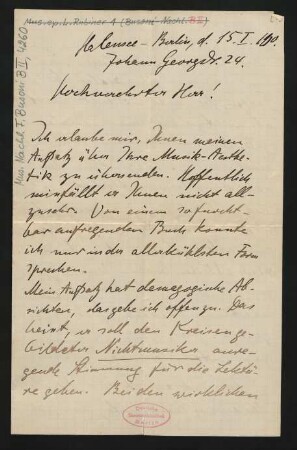 Mus. ep. L. Rubiner 1 (Busoni-Nachl. B II)
Mus. Nachl. F. Busoni B II, 4260
Halensee - Berlin, d. 15. I. 1910.
Johann Georgstr. 24.
Hochverehrter Herr!
Ich erlaube mir, Ihnen meinen
Aufsatz über Ihre Musik-Aesthe-
tik zu übersenden. Hoffentlich
missfällt er Ihnen nicht all-
zusehr. Von einem so furcht-
bar aufregenden Buch konnte
ich nur in der allerkühlsten Form
sprechen.
Mein Aufsatz hat demagogische Ab-
sichten, das gebe ich offen zu. Das
heisst, er soll den Kreisen ge-
bildeter Nichtmusiker anre-
gende Stimmung für die Lektü-
re geben. Bei den wirklichen
Deutsche
Staatsbibliothek
Berlin